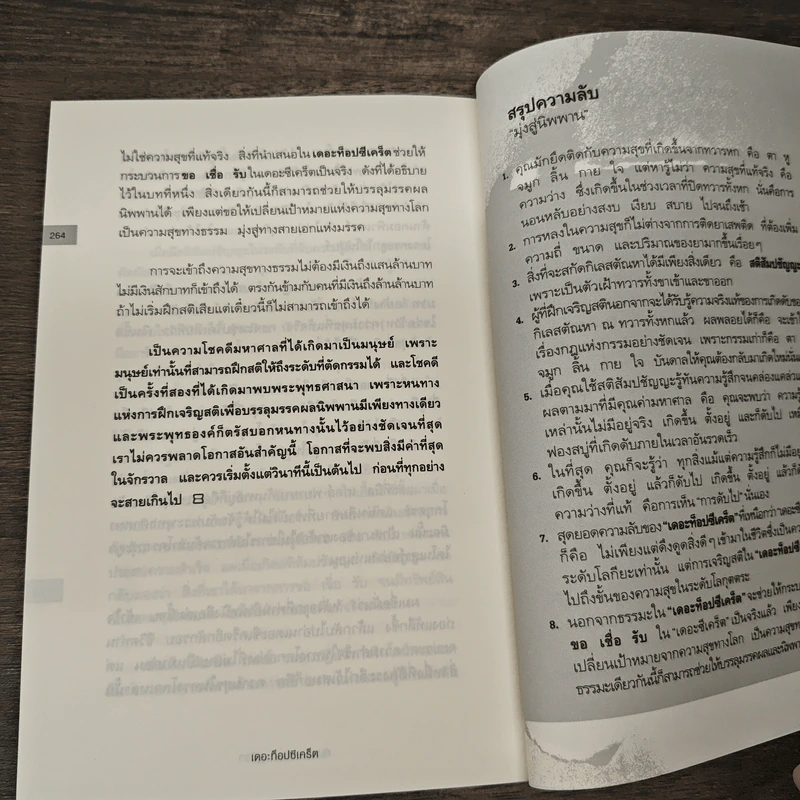 ไม่ใช่ความสุขที่แท้จริง สิ่งที่นำเสนอใน เดอะท็อปซีเคร็ต ช่วยให้
กระบวนการ ขอ เชื่อ รับ ในเดอะซีเคร็ตเป็นจริง ดังที่ได้อธิบาย
ไว้ในบทที่หนึ่ง สิ่งเดียวกันนี้ก็สามารถช่วยให้บรรลุมรรคผล
นิพพานได้ เพียงแต่ขอให้เปลี่ยนเป้าหมายแห่งความสุขทางโลก
เป็นความสุขทางธรรม มุ่งสู่ทางสายเอกแห่งมรรค
264
การจะเข้าถึงความสุขทางธรรมไม่ต้องมีเงินถึงแสนล้านบาท
ไม่มีเงินสักบาทก็เข้าถึงได้ ตรงกันข้ามกับคนที่มีเงินถึงล้านล้านบาท
ถ้าไม่เริ่มฝึกสติเสียแต่เดี๋ยวนี้ก็ไม่สามารถเข้าถึงได้
เป็นความโชคดีมหาศาลที่ได้เกิดมาเป็นมนุษย์ เพราะ
มนุษย์เท่านั้นที่สามารถฝึกสติให้ถึงระดับที่ตัดกรรมได้ และโชคดี
เป็นครั้งที่สองที่ได้เกิดมาพบพระพุทธศาสนา เพราะหนทาง
แห่งการฝึกเจริญสติเพื่อบรรลุมรรคผลนิพพานมีเพียงทางเดียว
และพระพุทธองค์ก็ตรัสบอกหนทางนั้นไว้อย่างชัดเจนที่สุด
เราไม่ควรพลาดโอกาสอันสำคัญนี้ โอกาสที่จะพบสิ่งมีค่าที่สุด
ในจักรวาล และควรเริ่มตั้งแต่วินาทีนี้เป็นต้นไป ก่อนที่ทุกอย่าง
จะสายเกินไป
เดอะท็อปซีเคร็ต
สรุปความลับ
"มุ่งสู่นิพพาน"
1. คุณมักยึดติดกับความสุขที่เกิดขึ้นจากทวารหก คือ ตา หู
จมูก ลิ้น กาย ใจ แต่หารู้ไม่ว่า ความสุขที่แท้จริง คือ
ความว่าง ซึ่งเกิดขึ้นในช่วงเวลาที่ปิดทวารทั้งหก นั่นคือการ
นอนหลับอย่างสงบ เงียบ สบาย ไปจนถึงเช้า
2. การหลงในความสุขก็ไม่ต่างจากการติดยาเสพติด ที่ต้องเพิ่ม
ความถี่ ขนาด และปริมาณของยามากขึ้นเรื่อยๆ
3. สิ่งที่จะสกัดกิเลสตัณหาได้มีเพียงสิ่งเดียว คือ สติสัมปชัญญะ
เพราะเป็นตัวเฝ้าทวารทั้งขาเข้าและขาออก
4. ผู้ที่ฝึกเจริญสตินอกจากจะได้รับรู้ความจริงแท้ของการเกิดดับของ
กิเลสตัณหา ณ ทวารทั้งหกแล้ว ผลพลอยได้ก็คือ จะเข้าใจ
เรื่องกฎแห่งกรรมอย่างชัดเจน เพราะกรรมเก่าก็คือ ตา
จมูก ลิ้น กาย ใจ บันดาลให้คุณต้องกลับมาเกิดใหม่นั่น
5. เมื่อคุณใช้สติสัมปชัญญะรู้ทันความรู้สึกจนคล่องแคล่ว
ผลตามมาที่มีคุณค่ามหาศาล คือ คุณจะพบว่า ความรู้
เหล่านั้นไม่มีอยู่จริง เกิดขึ้น ตั้งอยู่ และก็ดับไป
ฟองสบู่ที่เกิดดับภายในเวลาอันรวดเร็ว
6. ในที่สุด คุณก็จะรู้ว่า ทุกสิ่งแม้แต่ความรู้สึกก็ไม่มีอยู่
เกิดขึ้น ตั้งอยู่ แล้วก็ดับไป เกิดขึ้น ตั้งอยู่ แล้วก็ดับ
ความว่างที่แท้ คือการเห็น "การดับไป" นั่นเอง
7. สุดยอดความลับของ "เดอะท็อปซีเคร็ต" ที่เหนือกว่า
ก็คือ ไม่เพียงแต่ดึงดูดสิ่งดีๆ เข้ามาในชีวิตซึ่งเป็นความ
ระดับโลกียะเท่านั้น แต่การเจริญสติใน "เดอะท็อปซี
ไปถึงขั้นของความสุขในระดับโลกุตตระ
8. นอกจากธรรมะใน "เดอะท็อปซีเคร็ต" จะช่วยให้กระบ
ขอ เชื่อ รับ ใน "เดอะซีเคร็ต" เป็นจริงแล้ว
เปลี่ยนเป้าหมายจากความสุขทางโลก เป็นความสุขทาง
ธรรมะเดียวกันนี้ก็สามารถช่วยให้บรรลุมรรคผลและนิพพาน